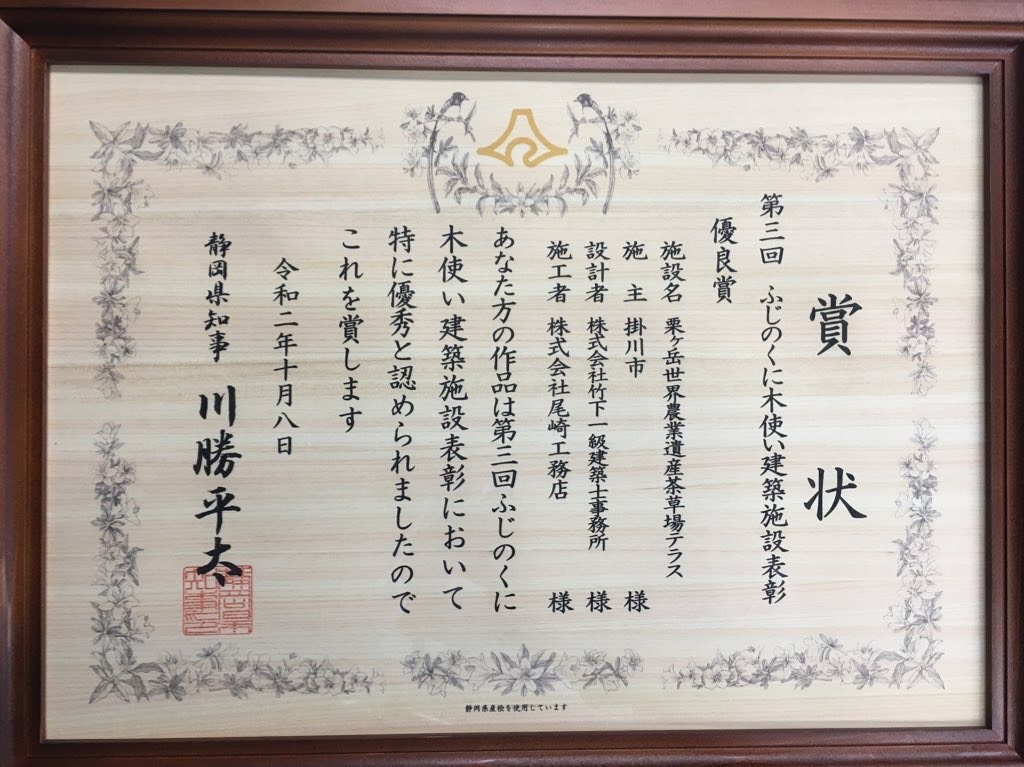 賞状
第三回 ふじのくに木使い建築施設表彰
優良賞
施設名 粟ヶ岳世界農業遺産茶草場テラス
施主 掛川市 様
設計者 株式会社竹下一級建築士事務所 様
施工者 株式会社尾崎工務店 様
あなた方の作品は第三回ふじのくに
木使い建築施設表彰において
特に優秀と認められましたので
これを賞します
令和二年十月八日
静岡県知事 川勝平太
静岡県産桧を使用しています